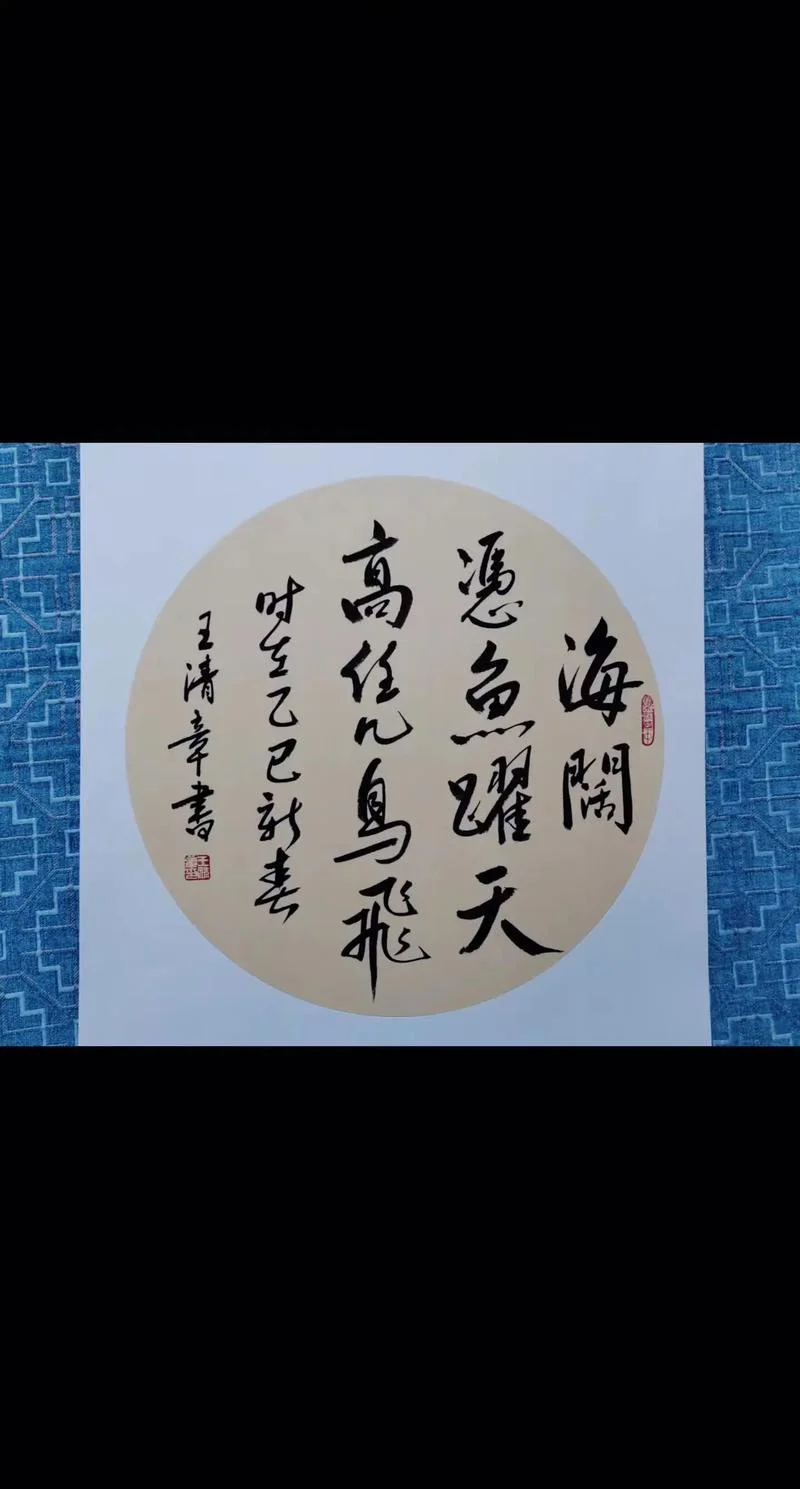 海闊
憑魚躍天
高任凡鳥飛
时在乙巳新春
王清章書